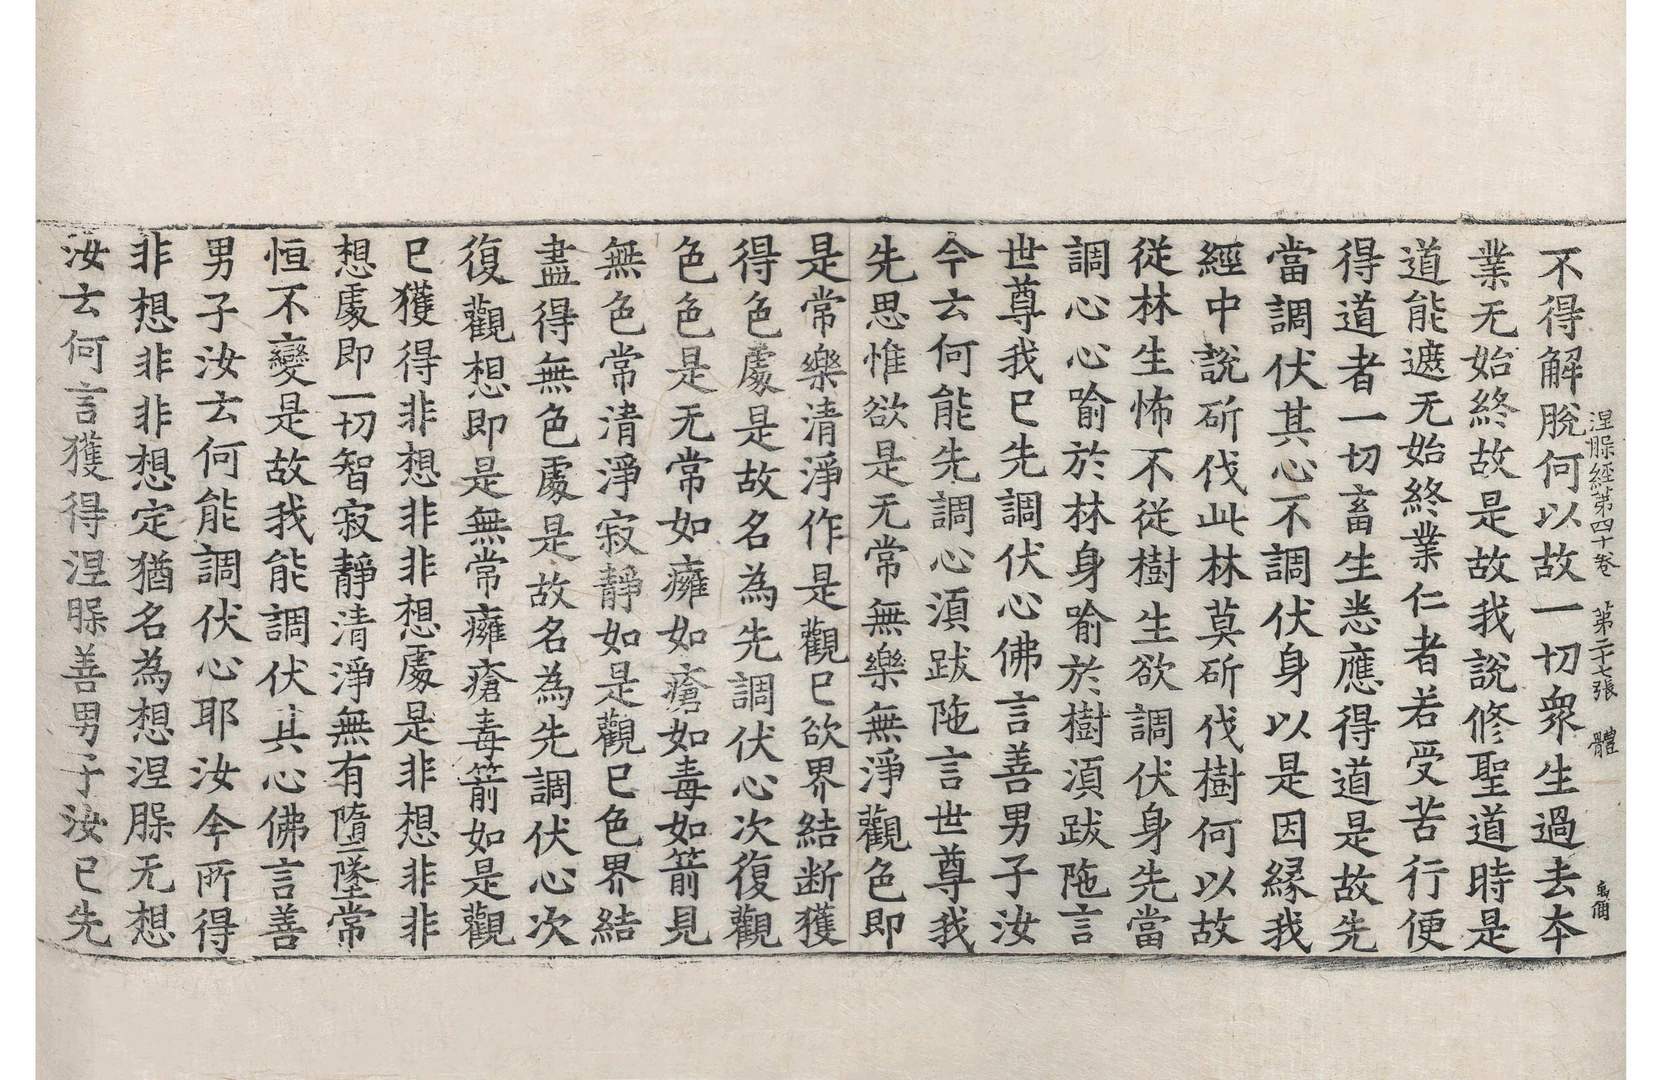 涅𦙶經第四十卷　第二十七張　體
不得解脫何以故一切衆生過去夲
業无始終故是故我說修聖道時是
道能遮无始終業仁者若受苦行便
得道者一切畜生悉應得道是故先
當調伏其心不調伏身以是因縁我
經中說斫伐此林莫斫伐樹何以故
從林生怖不從樹生欲調伏身先當
調心心喻於林身喻於樹湏跋陁言
世尊我已先調伏心佛言善男子汝
今云何能先調心湏跋陁言世尊我
先思惟欲是无常無樂無淨觀色即
是常樂清淨作是觀已欲界結断獲
得色處是故名為先調伏心次復觀
色色是无常如癰如瘡如毒如箭見
無色常清淨寂靜如是觀已色界結
盡得無色處是故名為先調伏心次
復觀想即是無常癰瘡毒箭如是觀
已獲得非想非非想處是非想非非
想處即一切智寂靜清淨無有墮墜常
恒不變是故我能調伏其心佛言善
男子汝云何能調伏心耶汝今所得
非想非非想定猶名為想涅𦙶无想
汝云何言獲得涅𦙶善男子汝已先